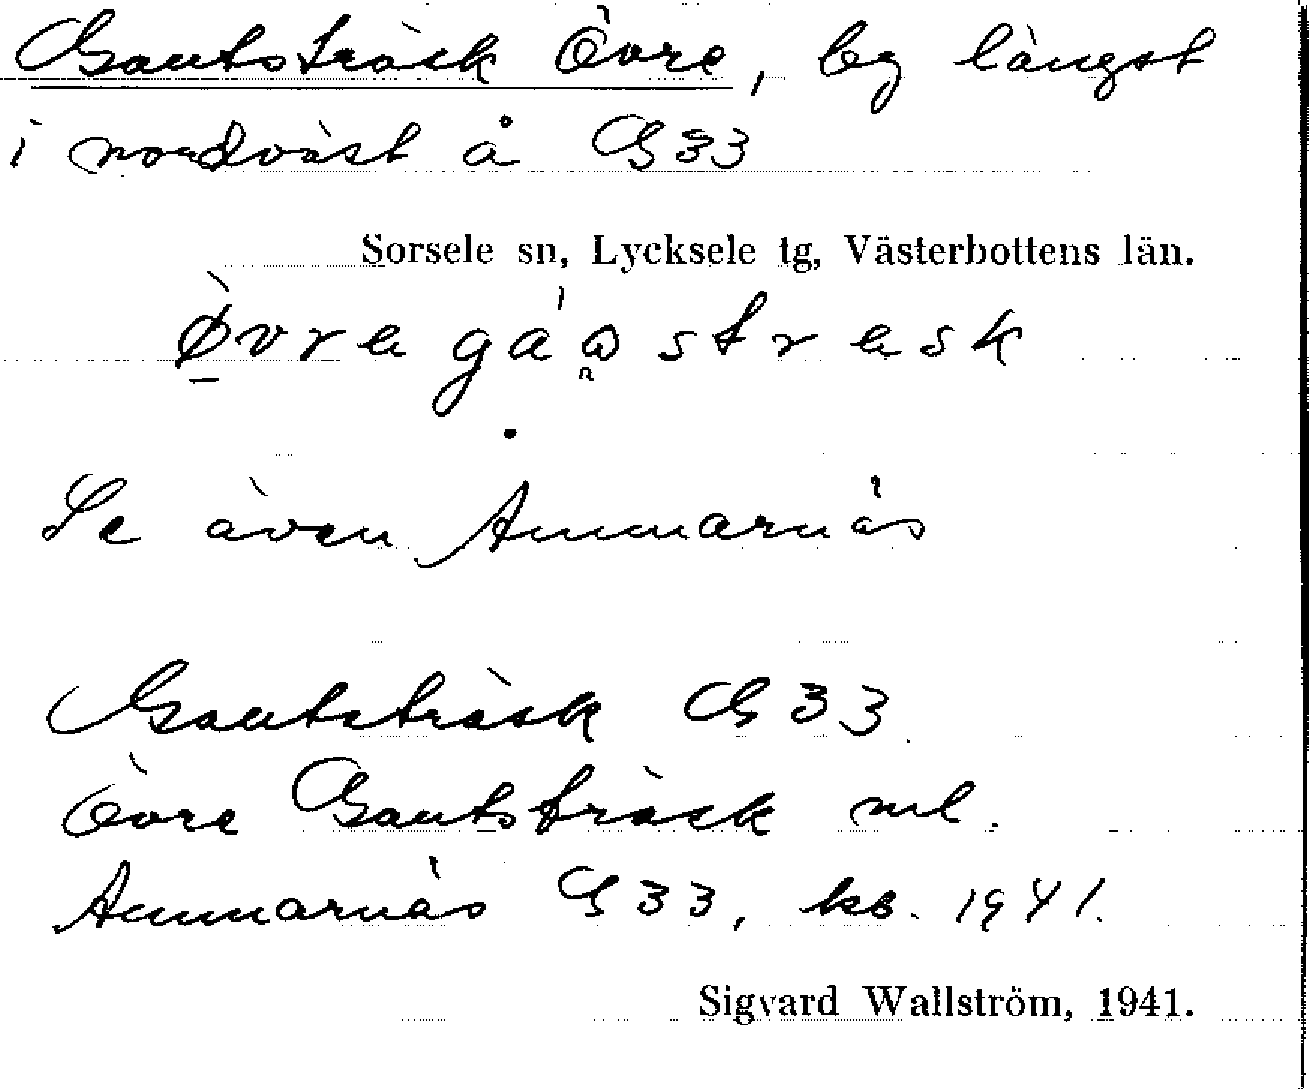 Gautsträsk Övre, by längst
i nordväst å G33
Sorsele sn, Lycksele tg, Västerbottens län.
Se även Ammarnäs
Gautsträsk G33
Övre Gautsträsk nl.
Ammarnäs G33, kb. 1941.
Sigvard Wallström, 1941.